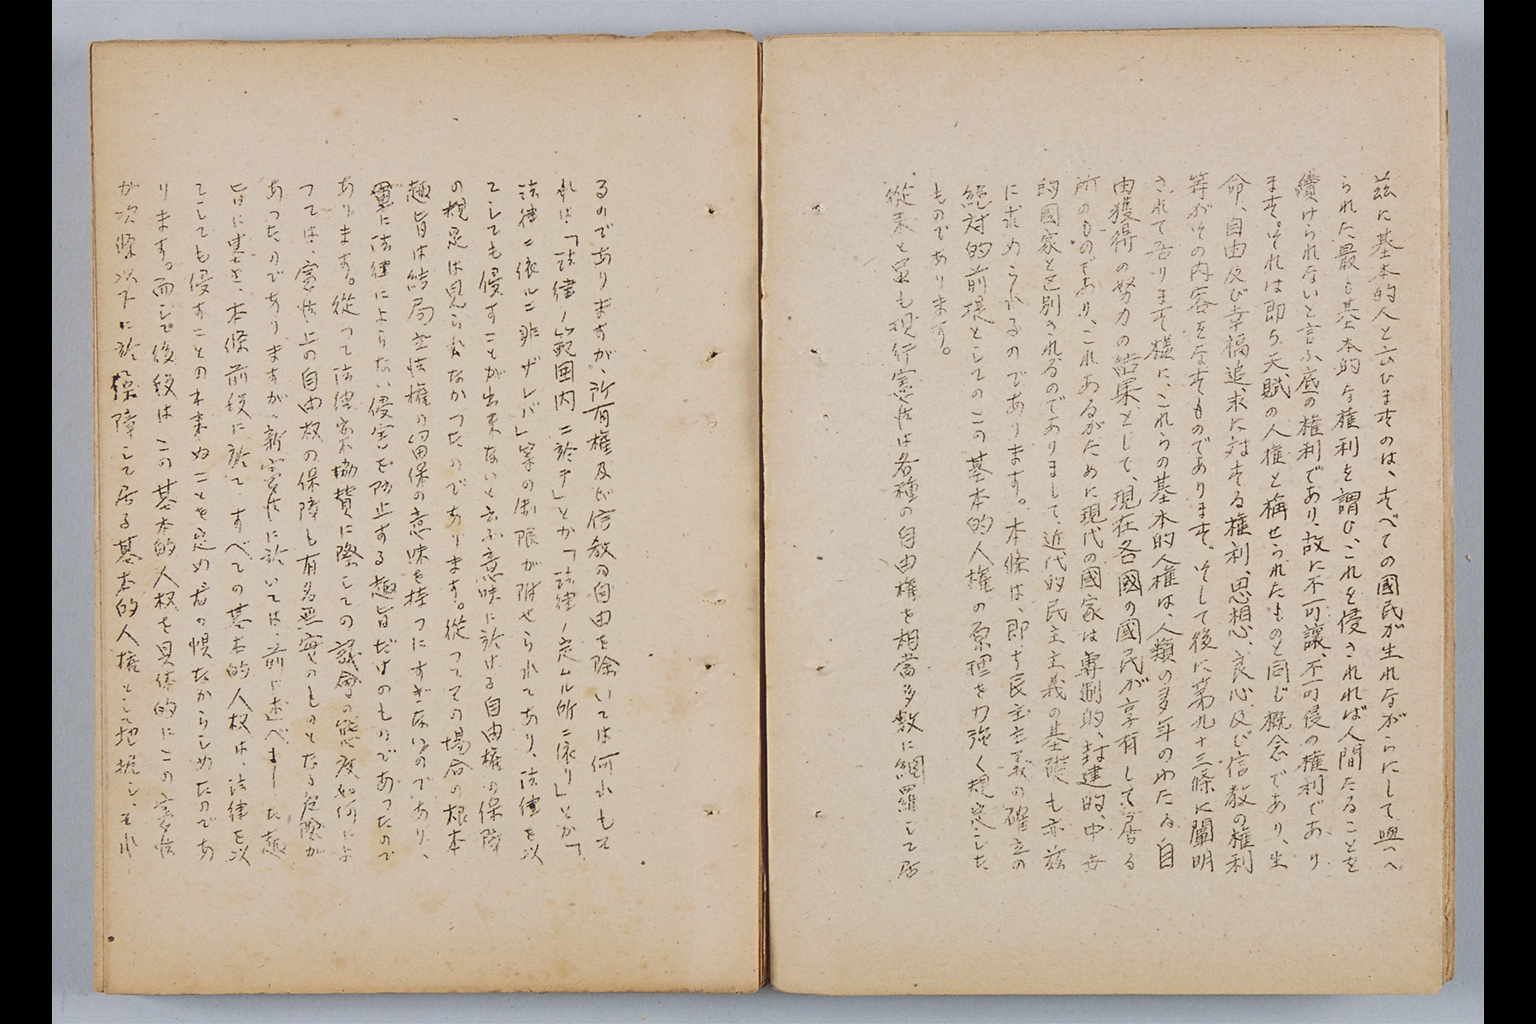 茲に基本的人と云ひますのは、すべての國民が生れながらにして與へ
られた最も基本的な権利を謂ひ、これを侵されれば人間たることを
續けられないと言ふ底の権利であり、故に不可讓、不可侵の権利であり
ます。それは即ち天賦の人権と稱せられたものと同じ概念であり、生
命、自由及び幸福追求に対する権利、思想、良心、及び信教の権利
等がその内容をなすものであります。そして後に第九十三條に闡明
されて居ります様に、これらの基本的人権は、人類の多年のわたる自
由獲得の努力の結果として、現在各國の國民が享有して居る
所のものであり、これあるがために現代の國家は專制的、封建的、中世
的國家と区別されるのでありまして、近代的民主主義の基礎も亦茲
に求められるのであります。本條は、即ち民主主義の確立の
絶対的前提としてのこの基本的人権の原理を力強く規定した
ものであります。
從来と雖も現行憲法は各種の自由権を相當多数に網羅して居
るのでありますが、所有権及び信教の自由を除いては何れもそ
れは「法律ノ範囲内ニ於テ」とか「法律ノ定ムル所ニ依リ」とか「
法律ニ依ルニ非ザレバ」等の制限が附せられてあり、法律を以
てしても侵すことが出来ないと云ふ意味に於ける自由権の保障
の規定は見られなかつたのであります。從つてその場合の根本
趣旨は結局立法権の留保の意味を持つにすぎないのであり、
單に法律によらない侵害を防止する趣旨だけのものであつたので
あります。從つて法律案協賛に際しての議會の態度如何によ
つては、憲法上の自由权の保障も有名無實のものとなる危険が
あつたのでありますが、新憲法に於いては、前に述べました趣
旨に基き、本條前段に於て、すべての基本的人权は、法律を以
てしても侵すことの出来ぬことを定め右の惧なからしめたのであ
ります。而して後段はこの基本的人权を具体的にこの憲法
が次條以下に於て保障して居る基本的人権として把握し、それ